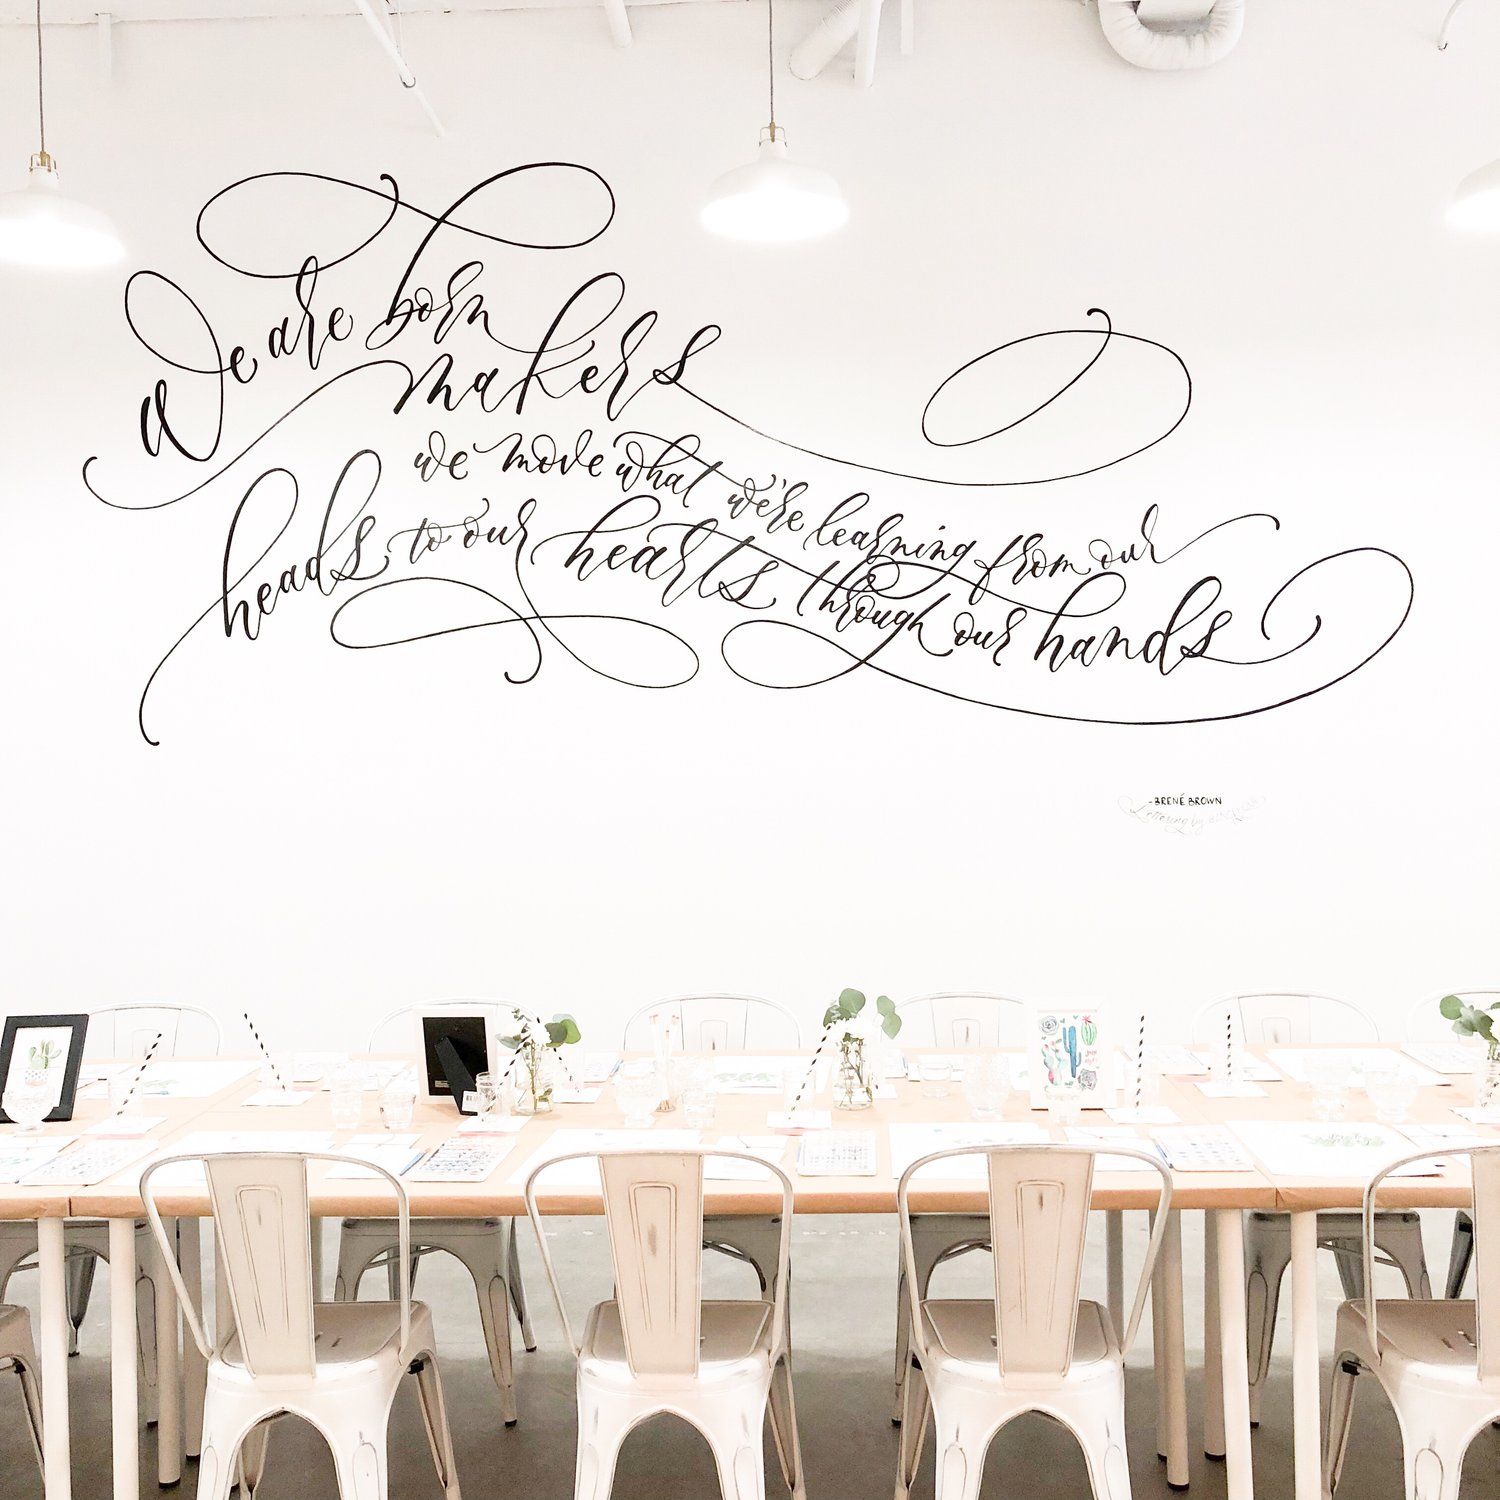 We are born
makers
we move what we're learning from our
heads to our hearts through our hands
-BRENÉ BROWN
Lettering by